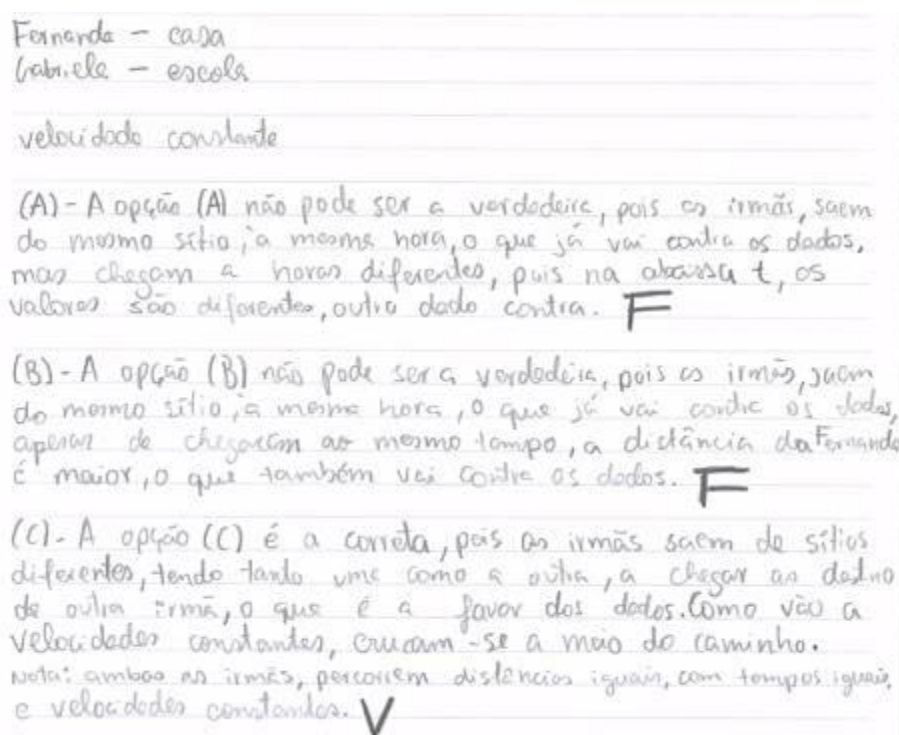 Fernanda - casa
Gabriela - escola
velocidade constante
(A) - A opção (A) não pode ser a verdadeira, pois as irmãs, saem
do mesmo sítio, à mesma hora, o que já vai contra os dados,
mas chegam a horas diferentes, pois na abcissa t, os
valores são diferentes, outro dado contra. F
(B) - A opção (B) não pode ser a verdadeira, pois as irmãs, saem
do mesmo sítio, à mesma hora, o que já vai contra os dados,
apesar de chegarem ao mesmo tempo, a distância da Fernanda
é maior, o que também vai contra os dados. F
(C) - A opção (C) é a correta, pois as irmãs saem de sítios
diferentes, tendo tanto uma como a outra, a chegar ao destino
da outra irmã, o que é a favor dos dados. Como vão a
velocidades constantes, cruzam-se a meio do caminho.
Nota: ambas as irmãs, percorrem distâncias iguais, com tempos iguais,
e velocidades constantes. V